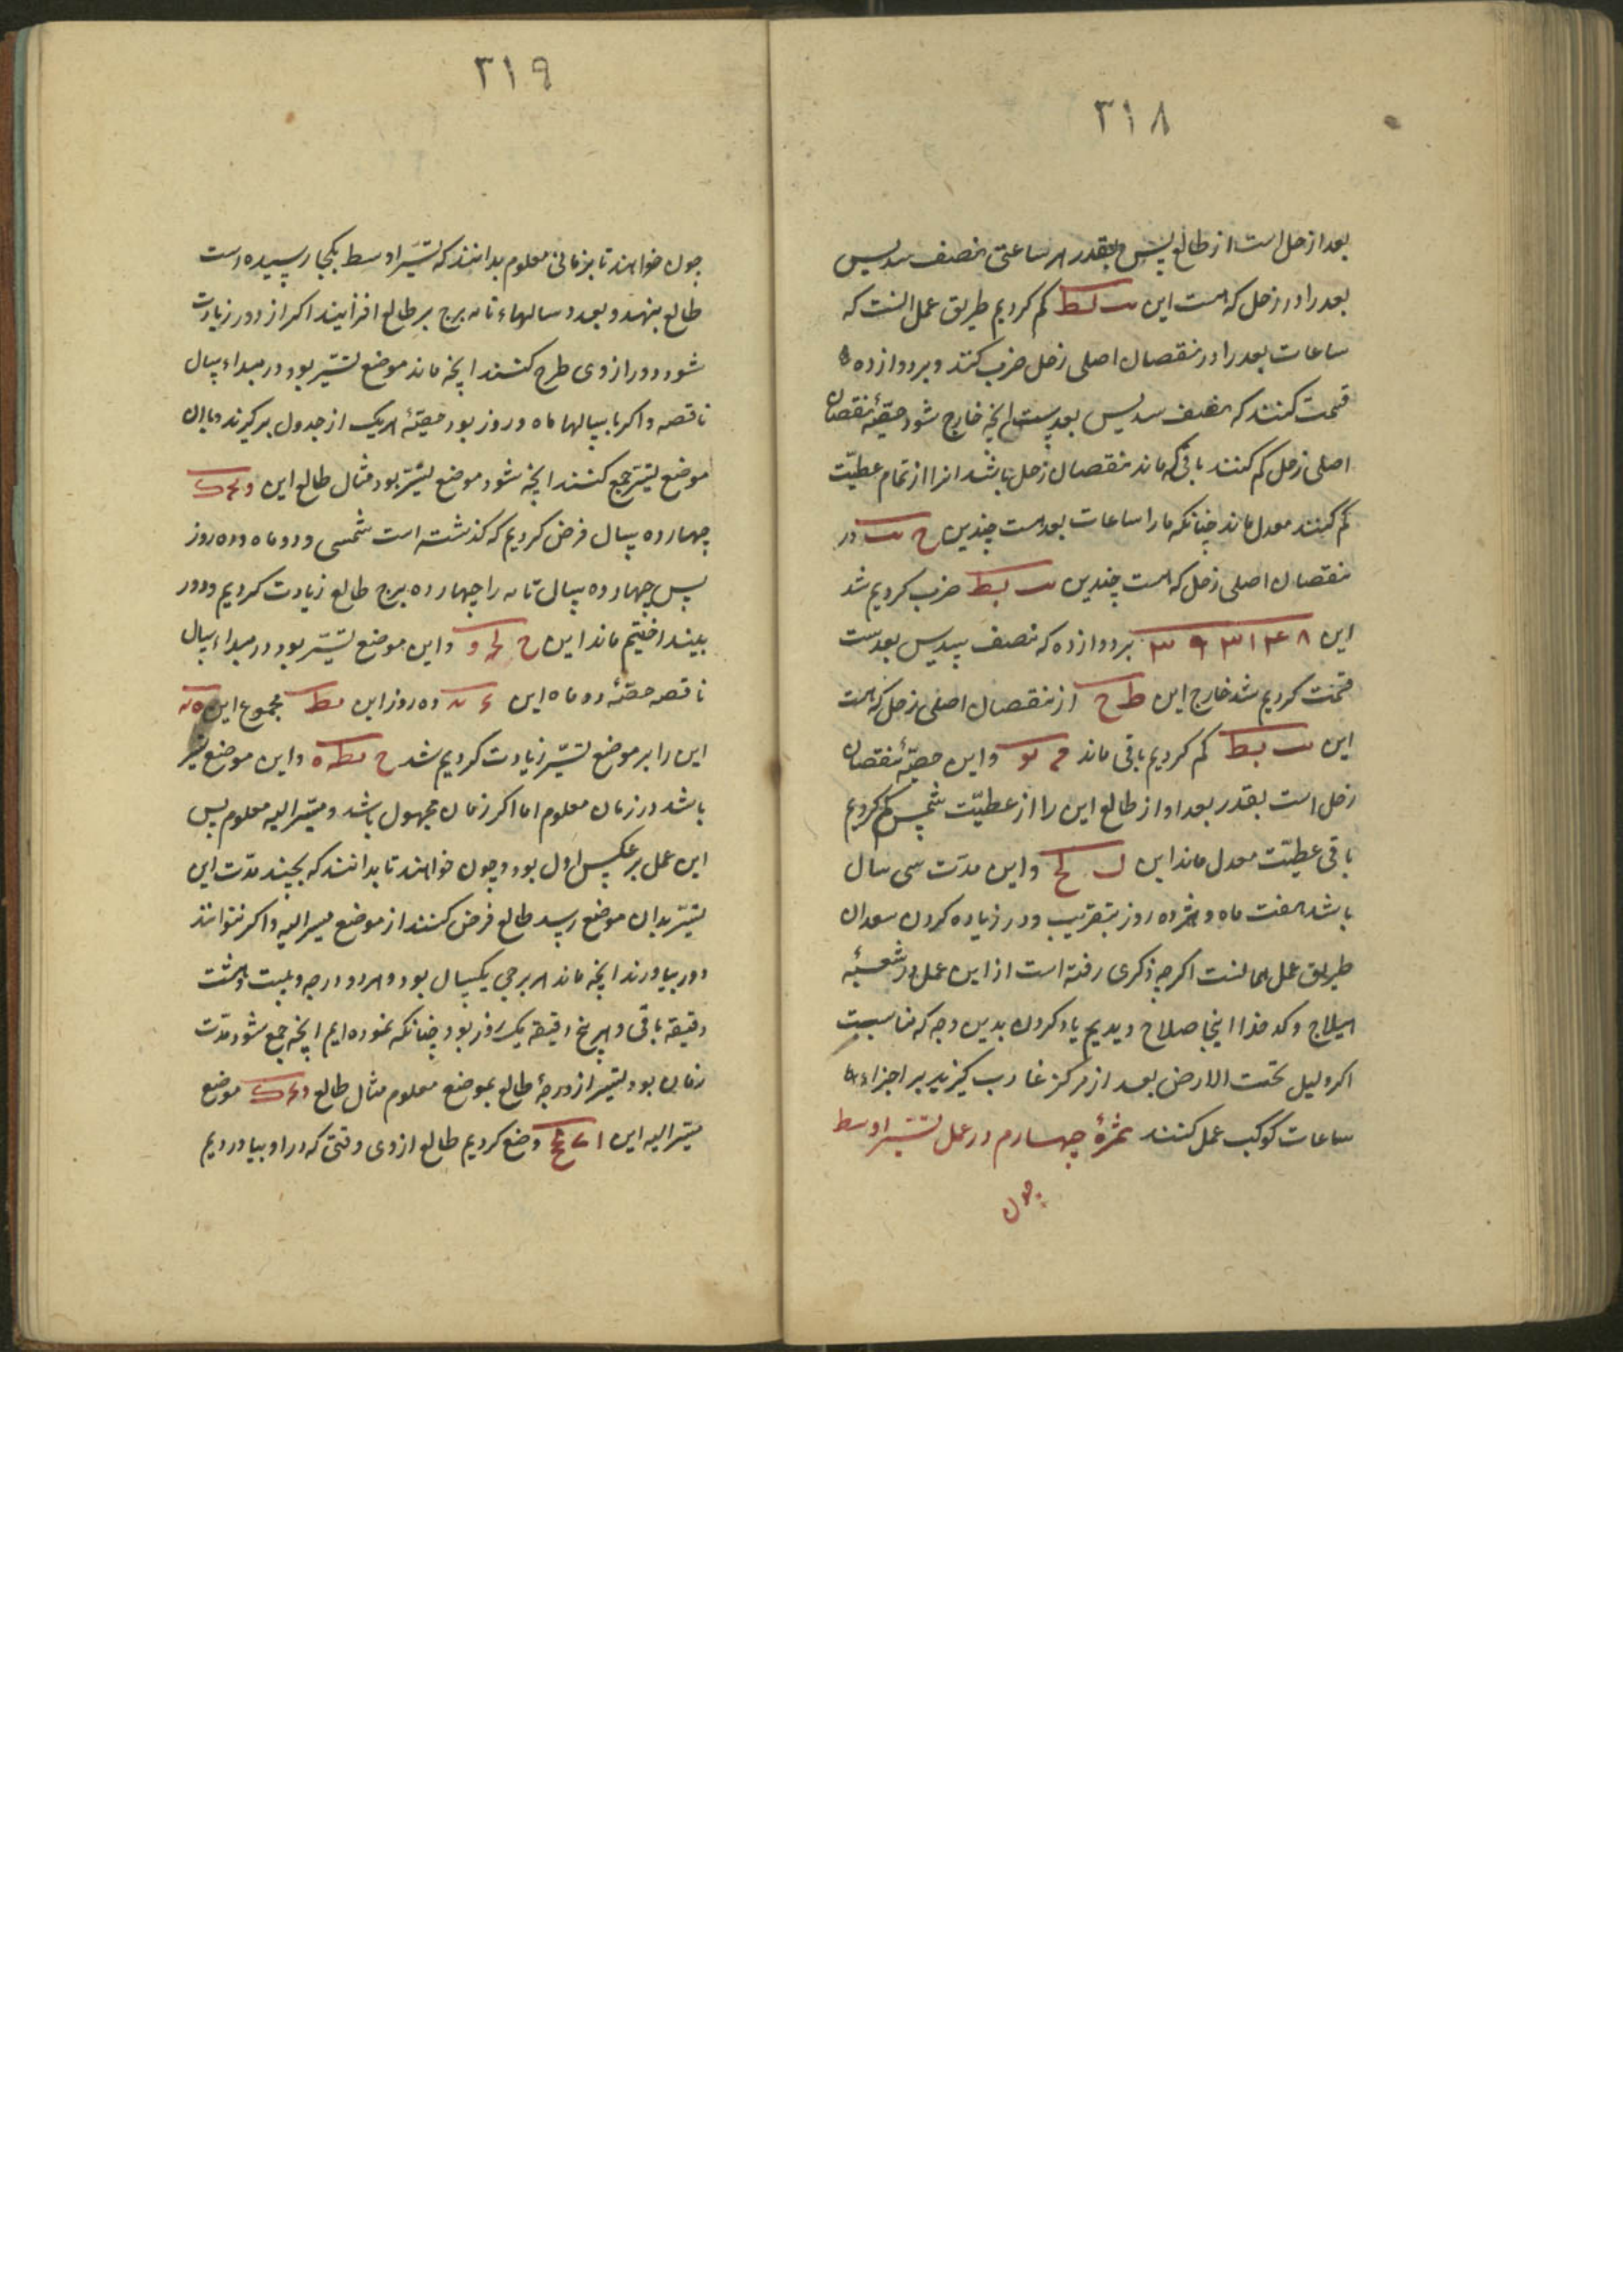 ٣١٨
بعد از حل است از طالع پس بقدر هر ساعتی نصف سدیس
بعد را در زحل که هست این کم کردیم طریق عمل آنست که
ساعات بعد را در نقصان اصلی زحل ضرب کنند و بر دوازده
قسمت کنند که نصف سدیس بعدست انچه خارج شود حصّهٔ نقصان
اصلی زحل کم کنند باقی که ماند نقصان زحل باشد انرا از تمام عطیّت
کم کنند معدل ماند چنانکه ما را ساعات بعد هست چندین در
نقصان اصلی زحل که هست چندین ضرب کردیم شد
این بر دوازده که نصف سدیس بعدست
قسمت کردیم شد خارج این ط ح از نقصان اصلی زحل که هست
این کم کردیم باقی ماند و این حصّهٔ نقصان
زحل است بقدر بعد او از طالع این را از عطیّت شمس کم کردیم
باقی عطیّت معدل ماند این و این مدّت سی سال
باشد هفت ماه و هژده روز بتقریب و در زیاده کردن سعدان
طریق عمل همانست اگر چه ذکری رفته است از این عمل در شعبهٔ
هیلاج و کدخدا اینجا صلاح دیدیم یاد کردن بدین وجه که مناسبت
اکر دلیل تحت الارض بعد از مرکز غارب کیزید بر اجزاء
ساعات کوکب عمل کنند ثمرهٔ چهارم در عمل تسیّر اوسط
چون
٣١٩
چون خواهند تا بزمانی معلوم بدانند که تسیّر اوسط بکجا رسیده است
طالع بنهند و بعدد سالهاء تامه برج بر طالع افزایند اکر از دور زیادت
شود دور از وی طرح کنند انچه ماند موضع تسیّر بود در مبداء سال
ناقصه و اکر با سالها ماه و روز بود حصّهٔ هریک از جدول برکیرند و با ان
موضع تسیّر جمع کنند انچه شود موضع تسیّر بود مثال طالع این
چهارده سال فرض کردیم که کذشته است شمسی و دو ماه و ده روز
پس چهارده سال تامه را چهارده برج طالع زیادت کردیم و دور
بینداختیم ماند این و این موضع تسیّر بود در مبداء سال
ناقصه حصّهٔ دو ماه این ده روز این مجموع این
این را بر موضع تسیّر زیادت کردیم شد و این موضع تسیر
باشد در زمان معلوم اما اکر زمان مجهول باشد و مسیّر الیه معلوم پس
این عمل بر عکس اول بود و چون خواهند تا بدانند که بچند مدّت این
تسیّر بدان موضع رسد طالع فرض کنند از موضع مسیر الیه و اکر نتوانند
دور بیاورند انچه ماند هر برجی یکسال بود و هر دو درجه و بیست و هشت
دقیقه باقی و هر پنج دقیقه یک روز بود چنانکه نموده ایم انچه جمع شود مدّت
زمان بود تسیر از درجهٔ طالع بموضع معلوم مثال طالع موضع
مسیّر الیه این وضع کردیم طالع از وی وقتی که در او بیاوردیم